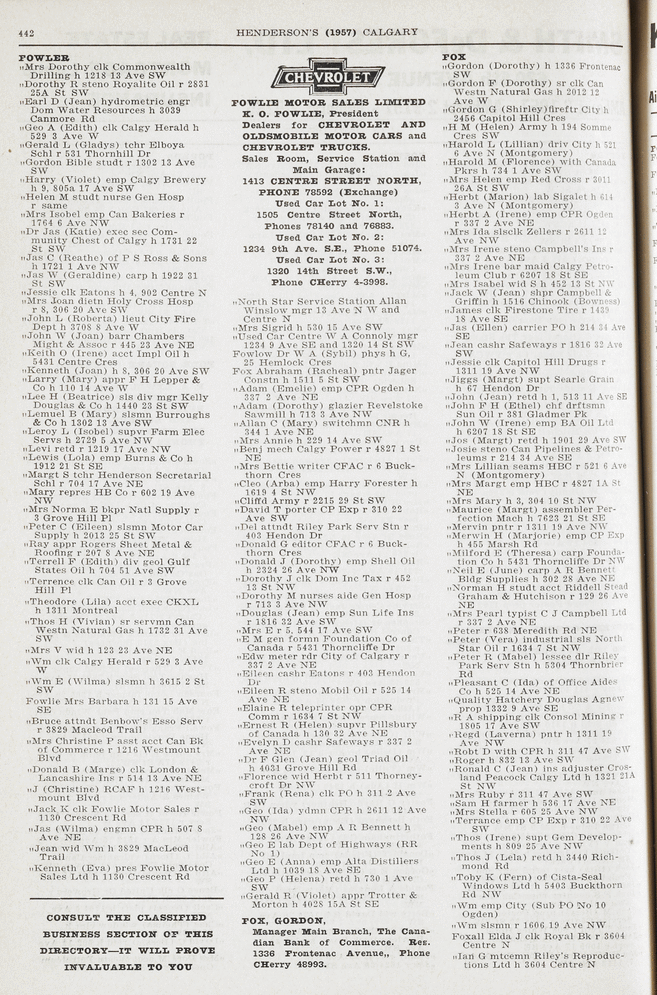 442
HENDERSON'S (1957) CALGARY
FOWLER
„Mrs Dorothy clk Commonwealth
Drilling h 1218 13 Ave SW
„Dorothy R steno Royalite Oil r 2831
25A St SW
„Earl D (Jean) hydrometric engr
Dom Water Resources h 3039
Canmore Rd
„Geo A (Edith) clk Calgary Herald h
529 3 Ave W
„Gerald L (Gladys) tchr Elboya
Schl r 531 Thornhill Dr
„Gordon Bible studt r 1302 13 Ave
SW
„Harry (Violet) emp Calgy Brewery
h 9, 805a 17 Ave SW
„Helen M studt nurse Gen Hosp
r same
„Mrs Isobel emp Can Bakeries r
1764 6 Ave NW
„Dr Jas (Katie) exec sec Com-
munity Chest of Calgy h 1731 22
St SW
„Jas C (Reathe) of P S Ross & Sons
h 1721 1 Ave NW
„Jas W (Geraldine) carp h 1922 31
St SW
„Jessie clk Eatons h 4, 902 Centre N
„Mrs Joan dietn Holy Cross Hosp
r 8, 306 20 Ave SW
„John L (Roberta) lieut City Fire
Dept h 3708 8 Ave W
„John W (Joan) barr Chambers
Might & Assoc r 445 23 Ave NW
„Keith O (Irene) acct Impl Oil h
5431 Centre Cres
„Kenneth (Joan) h 8, 306 20 Ave SW
„Larry (Mary) appr F H Lepper &
Co h 110 14 Ave W
„Lee H (Beatrice) sls div mgr Kelly
Douglas & Co h 1440 23 St SW
„Lemuel B (Mary) slsmn Burroughs
& Co h 1302 13 Ave SW
„Leroy L (Isobel) supvr Farm Elec
Servs h 2729 5 Ave NW
„Levi retd r 1219 17 Ave NW
„Lewis (Lola) emp Burns & Co h
1912 21 St SE
„Margt S tchr Henderson Secretarial
Schl r 704 17 Ave NE
„Mary repres HB Co r 602 19 Ave
NW
„Mrs Norma E bkpr Natl Supply r
3 Grove Hill Pl
„Peter C (Eileen) slsmn Motor Car
Supply h 2013 25 St SW
„Ray appr Rogers Sheet Metal &
Roofing r 207 8 Ave NE
„Terrell F (Edith) div geol Gulf
States Oil h 704 51 Ave SW
„Terrence clk Can Oil r 3 Grove
Hill Pl
„Theodore (Lila) acct exec CKXL
h 1311 Montreal
„Thos H (Vivian) sr servmn Can
Westn Natural Gas h 1732 31 Ave
SW
„Mrs V wid h 123 23 Ave NE
„Wm clk Calgy Herald r 529 3 Ave
W
„Wm E (Wilma) slsmn h 3615 2 St
SW
Fowlie Mrs Barbara h 131 15 Ave
SE
„Bruce attndt Benbow's Esso Serv
r 3829 Macleod Trail
„Mrs Christine P asst acct Can Bk
of Commerce r 1216 Westmount
Blvd
„Donald B (Marge) clk London &
Lancashire Ins r 514 13 Ave NE
„J (Christine) RCAF h 1216 West-
mount Blvd
„Jack K clk Fowlie Motor Sales r
1130 Crescent Rd
„Jas (Wilma) engmn CPR h 507 8
Ave NE
„Jean wid Wm h 3829 MacLeod
Trail
„Kenneth (Eva) pres Fowlie Motor
Sales Ltd h 1130 Crescent Rd
CONSULT THE CLASSIFIED
BUSINESS SECTION OF THIS
DIRECTORY—IT WILL PROVE
INVALUABLE TO YOU
CHEVROLET
FOWLIE MOTOR SALES LIMITED
K. O. FOWLIE, President
Dealers for CHEVROLET AND
OLDSMOBILE MOTOR CARS and
CHEVROLET TRUCKS.
Sales Room, Service Station and
Main Garage:
1413 CENTRE STREET NORTH,
PHONE 78592 (Exchange)
Used Car Lot No. 1:
1505 Centre Street North,
Phones 78140 and 76883.
Used Car Lot No. 2:
1234 9th Ave. S.E., Phone 51074.
Used Car Lot No. 3:
1320 14th Street S.W.,
Phone CHerry 4-3998.
„North Star Service Station Allan
Winslow mgr 13 Ave N W and
Centre N
„Mrs Sigrid h 530 15 Ave SW
„Used Car Centre W A Connoly mgr
1234 9 Ave SE and 1320 14 St SW
Fowlow Dr W A (Sybil) phys h G,
25 Hemlock Cres
Fox Abraham (Racheal) pntr Jager
Constn h 1511 5 St SW
„Adam (Emelie) emp CPR Ogden h
337 2 Ave NE
„Adam (Dorothy) glazier Revelstoke
Sawmill h 713 3 Ave NW
„Allan C (Mary) switchmn CNR h
344 1 Ave NE
„Mrs Annie h 229 14 Ave SW
„Benj mech Calgy Power r 4827 1 St
NE
„Mrs Bettie writer CFAC r 6 Buck-
thorn Cres
„Cleo (Arba) emp Harry Forester h
1619 4 St NW
„Cliffd Army r 2215 29 St SW
„David T porter CP Exp r 310 22
Ave SW
„Del attndt Riley Park Serv Stn r
403 Hendon Dr
„Donald G editor CFAC r 6 Buck-
thorn Cres
„Donald J (Dorothy) emp Shell Oil
h 2324 26 Ave NW
„Dorothy J clk Dom Inc Tax r 452
13 St NW
„Dorothy M nurses aide Gen Hosp
r 713 3 Ave NW
„Douglas (Jean) emp Sun Life Ins
r 1816 32 Ave SW
„Mrs E r 5, 544 17 Ave SW
„E M gem formn Foundation Co of
Canada r 5431 Thorncliffe Dr
„Edw meter rdr City of Calgary r
337 2 Ave NE
„Eileen cashr Eatons r 403 Hendon
Dr
„Eileen R steno Mobil Oil r 525 14
Ave NE
„Elaine R teleprinter opr CPR
Comm r 1634 7 St NW
„Ernest R (Helen) supvr Pillsbury
of Canada h 130 32 Ave NE
„Evelyn D cashr Safeways r 337 2
Ave NE
„Dr F Glen (Jean) geol Triad Oil
h 4031 Grove Hill Rd
„Florence wid Herbt r 511 Thorney-
croft Dr NW
„Frank (Rena) clk PO h 311 2 Ave
SW
„Geo (Ida) ydmn CPR h 2611 12 Ave
NW
„Geo (Mabel) emp A R Bennett h
128 26 Ave NW
„Geo E lab Dept of Highways (RR
No 1)
„Geo E (Anna) emp Alta Distillers
Ltd h 1039 18 Ave SE
„Geo P (Helena) retd h 730 1 Ave
SW
„Gerald R (Violet) appr Trotter &
Morton h 4028 15A St SE
FOX, GORDON,
Manager Main Branch, The Cana-
dian Bank of Commerce. Res.
1336 Frontenac Avenue,, Phone
CHerry 48993.
FOX
„Gordon (Dorothy) h 1336 Frontenac
SW
„Gordon F (Dorothy) sr clk Can
Westn Natural Gas h 2012 12
Ave W
„Gordon G (Shirley) fireftr City h
2456 Capitol Hill Cres
„H M (Helen) Army h 194 Somme
Cres SW
„Harold L (Lillian) driv City h 521
6 Ave N (Montgomery)
„Harold M (Florence) with Canada
Pkrs h 734 1 Ave SW
„Mrs Helen emp Red Cross r 3011
26A St SW
„Herbt (Marion) lab Sigalet h 614
3 Ave N (Montgomery)
„Herbt A (Irene) emp CPR Ogden
r 337 2 Ave NE
„Mrs Ida slsclk Zellers r 2611 12
Ave NW
„Mrs Irene steno Campbell's Ins r
337 2 Ave NE
„Mrs Irene bar maid Calgy Petro-
leum Club r 6207 18 St SE
„Mrs Isabel wid S h 452 13 St NW
„Jack W (Jean) shpr Campbell &
Griffin h 1516 Chinook (Bowness)
„James clk Firestone Tire r 1439
18 Ave SE
„Jas (Ellen) carrier PO h 214 34 Ave
SE
„Jean cashr Safeways r 1816 32 Ave
SW
„Jessie clk Capitol Hill Drugs r
1311 19 Ave NW
„Jiggs (Margt) supt Searle Grain
h 67 Hendon Dr
„John (Jean) retd h 1, 513 11 Ave SE
„John F H (Ethel) chf drftsmn
Sun Oil r 381 Gladmer Pk
„John W (Irene) emp BA Oil Ltd
h 6207 18 St SE
„Jos (Margt) retd h 1901 29 Ave SW
„Josie steno Can Pipelines & Petro-
leums r 214 34 Ave SE
„Mrs Lillian seams HBC r 521 6 Ave
N (Montgomery)
„Mrs Margt emp HBC r 4827 1A St
NE
„Mrs Mary h 3, 304 10 St NW
„Maurice (Margt) assembler Per-
fection Mach h 7623 21 St SE
„Mervin pntr r 1311 19 Ave NW
„Merwin H (Marjorie) emp CP Exp
h 455 Marsh Rd
„Milford E (Theresa) carp Founda-
tion Co h 5431 Thorncliffe Dr NW
„Neil E (June) carp A R Bennett
Bldg Supplies h 302 28 Ave NE
„Norman H studt acct Riddell Stead
Graham & Hutchison r 129 26 Ave
NE
„Mrs Pearl typist C J Campbell Ltd
r 337 2 Ave NE
„Peter r 638 Meredith Rd NE
„Peter (Vera) industrial sls North
Star Oil r 1634 7 St NW
„Peter R (Mabel) lessee dlr Riley
Park Serv Stn h 5304 Thornbrier
Rd
„Pleasant C (Ida) of Office Aides
Co h 525 14 Ave NE
„Quality Hatchery Douglas Agnew
prop 1332 9 Ave SE
„R A shipping clk Consol Mining r
1805 17 Ave SW
„Regd (Laverna) pntr h 1311 19
Ave NW
„Robt D with CPR h 311 47 Ave SW
„Roger h 832 13 Ave SW
„Ronald C (Jean) ins adjuster Cros-
land Peacock Calgy Ltd h 1321 21A
St NW
„Mrs Ruby r 311 47 Ave SW
„Sam H farmer h 536 17 Ave NE
„Mrs Stella r 605 25 Ave NW
„Terrance emp CP Exp r 310 22 Ave
SW
„Thos (Irene) supt Gem Develop-
ments h 809 25 Ave NW
„Thos J (Lela) retd h 3440 Rich-
mond Rd
„Toby K (Fern) of Cista-Seal
Windows Ltd h 5403 Buckthorn
Rd NW
„Wm emp City (Sub PO No 10
Ogden)
„Wm slsmn r 1606 19 Ave NW
Foxall Elda J clk Royal Bk r 3604
Centre N
„Ian G mtcemn Riley's Reproduc-
tions Ltd h 3604 Centre N